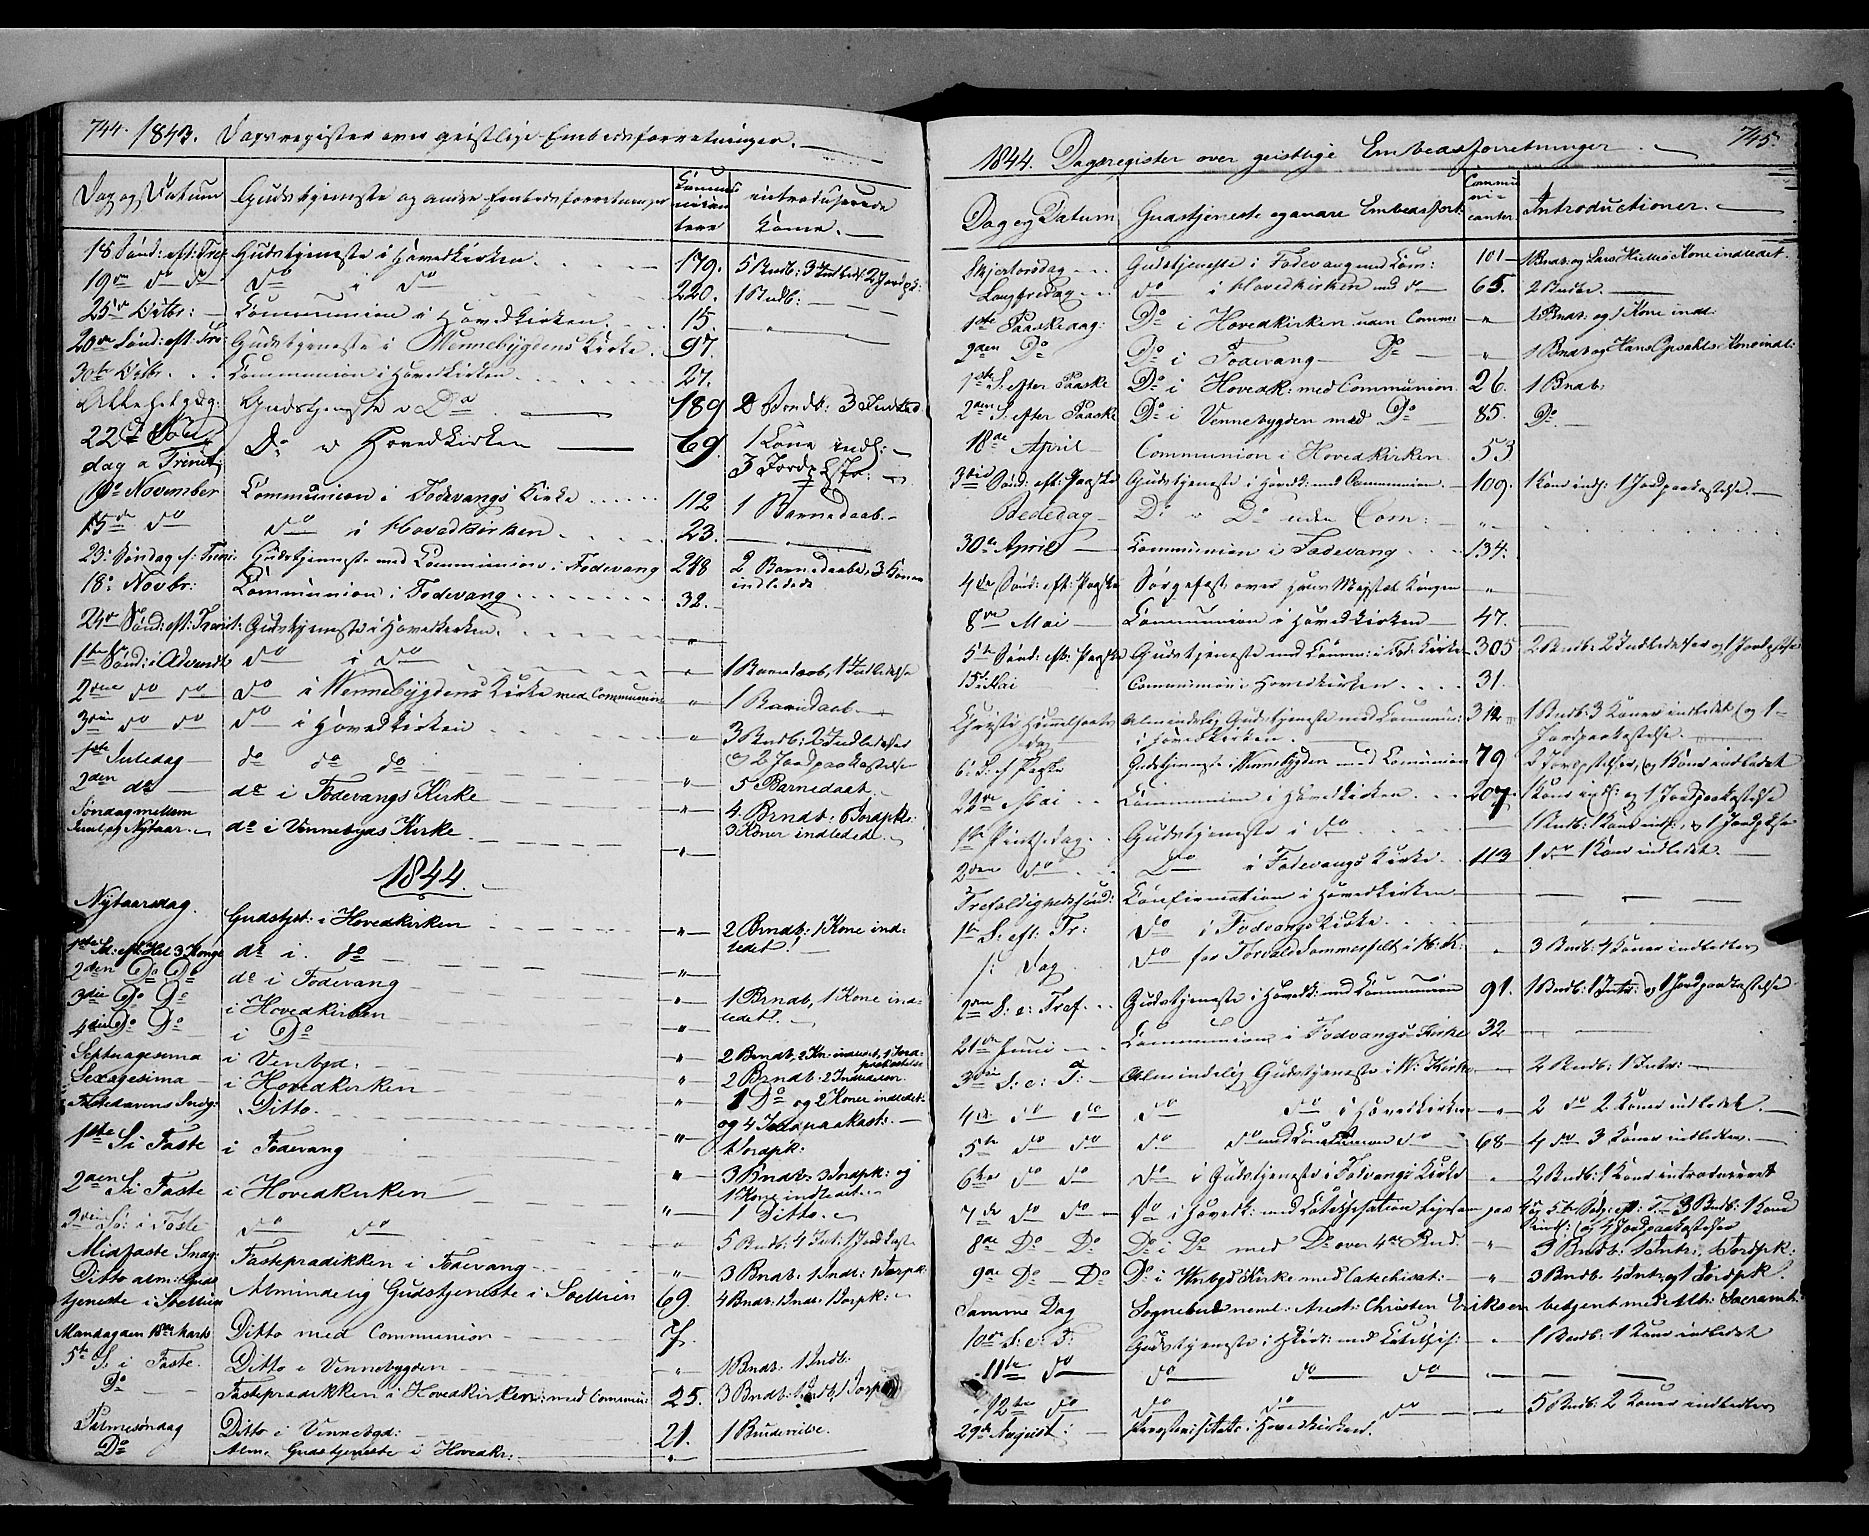 744. 1843. Dagsregister over geistlige Embedsforretninger.
Dag og Datum Gudstjeneste og andre Embedsforretninger Communicantere introducerede Koner.
18 Sönd: eft: Tref Gudstjeneste i Hovedkirken 179. 5 Bndb: 3
19de do do do i do 220. 1 Bndb:
25de Octbr: Communion i Hovedkirken 15. "
20de Sönd: eft: Tre: Gudstjeneste i Wennebygdens Kirke 97.
30te Octbr. Communion i Hovedkirken 27.
Allehelgeg: Gudstjenste i Do 189 2 Brndb: 3
22de Sön dag a Trinit: Do i Hovedkirken 69. 1 Kone indl:
3 Jordp
10de November Communion i Fodevangs Kirke 112 1 Barnedaab
15de do do i Hovedkirken 23.
23: Söndag ef: Trini: Gudstjeneste med Communion i Fodevang 248 2 Barnedaabe, 3 Koner indledede
18: Novbr: Communion i Fodevang 32.
24de Sönd: eft: Trinit: Gudstjeneste i Hovedkirken "
1te Sönd: i Advendt do i do " 1 Barnedaab, 1 Indledelse
2den do do do i Wennebygdens Kirke med Communion " 1 Barndaab
3die do do do i Hovedkirken " 3 Bndb: 2 Indledelser
1ste Juledag do do do og 2 Jordpaakastelse
2den do do i Fodevangs Kirke " 5 Barnedaab.
Søndag mellem Juul og Nytaar. do i Vennebyds Kirke " 4 Brndb, 6 Jordpk: 3 Koner indledede
1844.
Nytaarsdag. Gudstjst: i Hovedkirken " 2 Brndb: 1 Kone indledet!
1ste S. eft Hel 3 Konge do i do "
2den Do Do do i Fodevang "
3die Do Do i Hovedkirken " 1 Brndb, 1 Kone indledet.
4die Do Do i Do "
Septuagesima i Venbgd: " 2 Brndb, 2 Kr indledet, 1 Jordpaakastelse
Sexagesima i Hovedkirken " 2 Brndb: 2 Indledelser
Fastelavens Sndg: Ditto. " 1 Do og 2 Koner indledet:
og 4 Jordpaakast:
1ste S i Faste i Fodevang " 1 Jordpk:
2den S i Faste i Hovedkirken " 3 Bndb: 3 Jordpk: og 1 Kone indledet.
3die Sö: i Faste do do " 1 Ditto.
Midfaste Sndg: Fasteprædikken i Fodevang " 5 Bndb: 4 Int: 1 Jordkast
Ditto alm: Gudstjeneste i Svellun Almindelig Gudstjeneste i Svellun 69. 3 Bndb: 1 Indl: 1 Jorpk
4 Bndb: 1 Indr: 1 Jorpk:
Mandag den 18de Marts Ditto med Communion 7.
5te S. i Faste. Ditto i Vennebygden " 1 Bndb: 1 Indl:
Do Fasteprædikken i Hovedkirken: med Commun: 25. 3 Bndb: 1 Indl, 1 Jorp
Palmesöndag Ditto i Vennebgd: 21. 1 Brudevilse.
Do Alm. Gudstjeneste i Hovedkr: "
745.
1844. Dagsregister over geistlige Embedsforretninger.
Dag og Datum Gudstjeneste og andre Embedsforr: Communicanter Introductioner.
Skjertorsdag Gudstjeneste i Fodevang med Com: 101 1 Bndb: og Lars Kone indledet.
Langfredag do i Hovedkirken med do 65. 2 Bndbr.
1ste Paaskedag: Do i Hovedkirken uden Comm: " 1 Bndb: og 1 Kone indl:
2den Do Do i Fodevang Do " 1 Bndb og Hans Kone indl:
1ste S. efter Paaske Do i Hovedk: med Communion 26. 1 Bndb:
2den S. efter Paaske Do i Vennebygden med Do 85. Do.
18de April Communion i Hovedkirken 53
3die Sönd: eft: Paaske Gudstjeneste i Hovedk: med Communion 109. Kone indl: 1 Jordpaakastelse.
Bededag Do i Do uden Com: "
30te April Communion i Fodevang 134.
4de Sönd: eft: Paaske Sörgefest over Hans Majestæt Kongen "
8de Mai Communion i Hovedkirken 47.
5te Sönd: eft: Paaske Gudstjeneste med Comm: i Fod: Kirke 305 2 Bndb: 2 Indledelser og 1 Jordkastelse
15. Mai Communion i Hovedkirken 31.
Christi Himmelfarts dag Almindelig Gudstjeneste med Communi: i Hovedkirken 312 1 Bndb: 3 Koner indledet og 1 Jordpaakastelse
6. S. ef Paaske Gudstjeneste i Wennebygden med Communion 79 2 Jordpkstelser, og 1 Kone indledet
22de Mai Communion i Hovedkirken 207. 1 Kone indl: og 1 Jordpaakastelse
1te Pintsedag Gudstjeneste i do 1 Bndb: 1 Kone indl:, og 1 Jordpkstse
2den do Do i Fodevangs Kirke 113 1 do 1 Kone indledet.
Trefoldighedssönd: Confirmation i Hovedkirken
1te S: eft: Tr: do i Fodvangs Kirke "
s: Dag do for Torvald Sommerfeldt i H: K: " 3 Bndb: 4 Koner indledede
2den S: e: Tref. Gudstjeneste i Hovedk: med Communion 91. 1 Bndb: 1 Intr: og 1 Jordpaakastelse
21de Juni Communion i Fodvangs Kirke 32
3die S: e: T: Almindelig Gudstjeneste i W: Kirke 2 Bndb: 1 Intr:
4de do do do do i Hovedkirken " 2 do 2 Koner indledet.
5te do do do do med Communion do 68 4 do 3 Koner indledede.
6te do do do i Gudstjeneste i Fodvangs Kirke " 2 Bndb: 1 Kone introduceret
7de do do do i Hovedk: med Catechisation paa 4 og 5te Bdg: eft: 3 Bndb: 1 Kone indl: og 4 Jordpaakastelser
8de Do Do Do i Do med Do over 4de Bud. " 3 Bndb: 1 Intr: 1 Jordpk:
9de Do Do Do i Vnbgds Kirke med Catechisat: " 3 Bndb: 4 Intr: og 1 Jordpk.
Samme Dag Sognebud neml: Arest: Christen Eriksen betjent med Alt: Sacramt:
10de S: e: T: Gudstjeneste i Hkirk: med Catechis: " 1 Bndb: 1 Kone indledet
11te do do do do "
12te do do do do " 5 Bndb: 2 Koner indledede
29de August: i Hovedkirken.